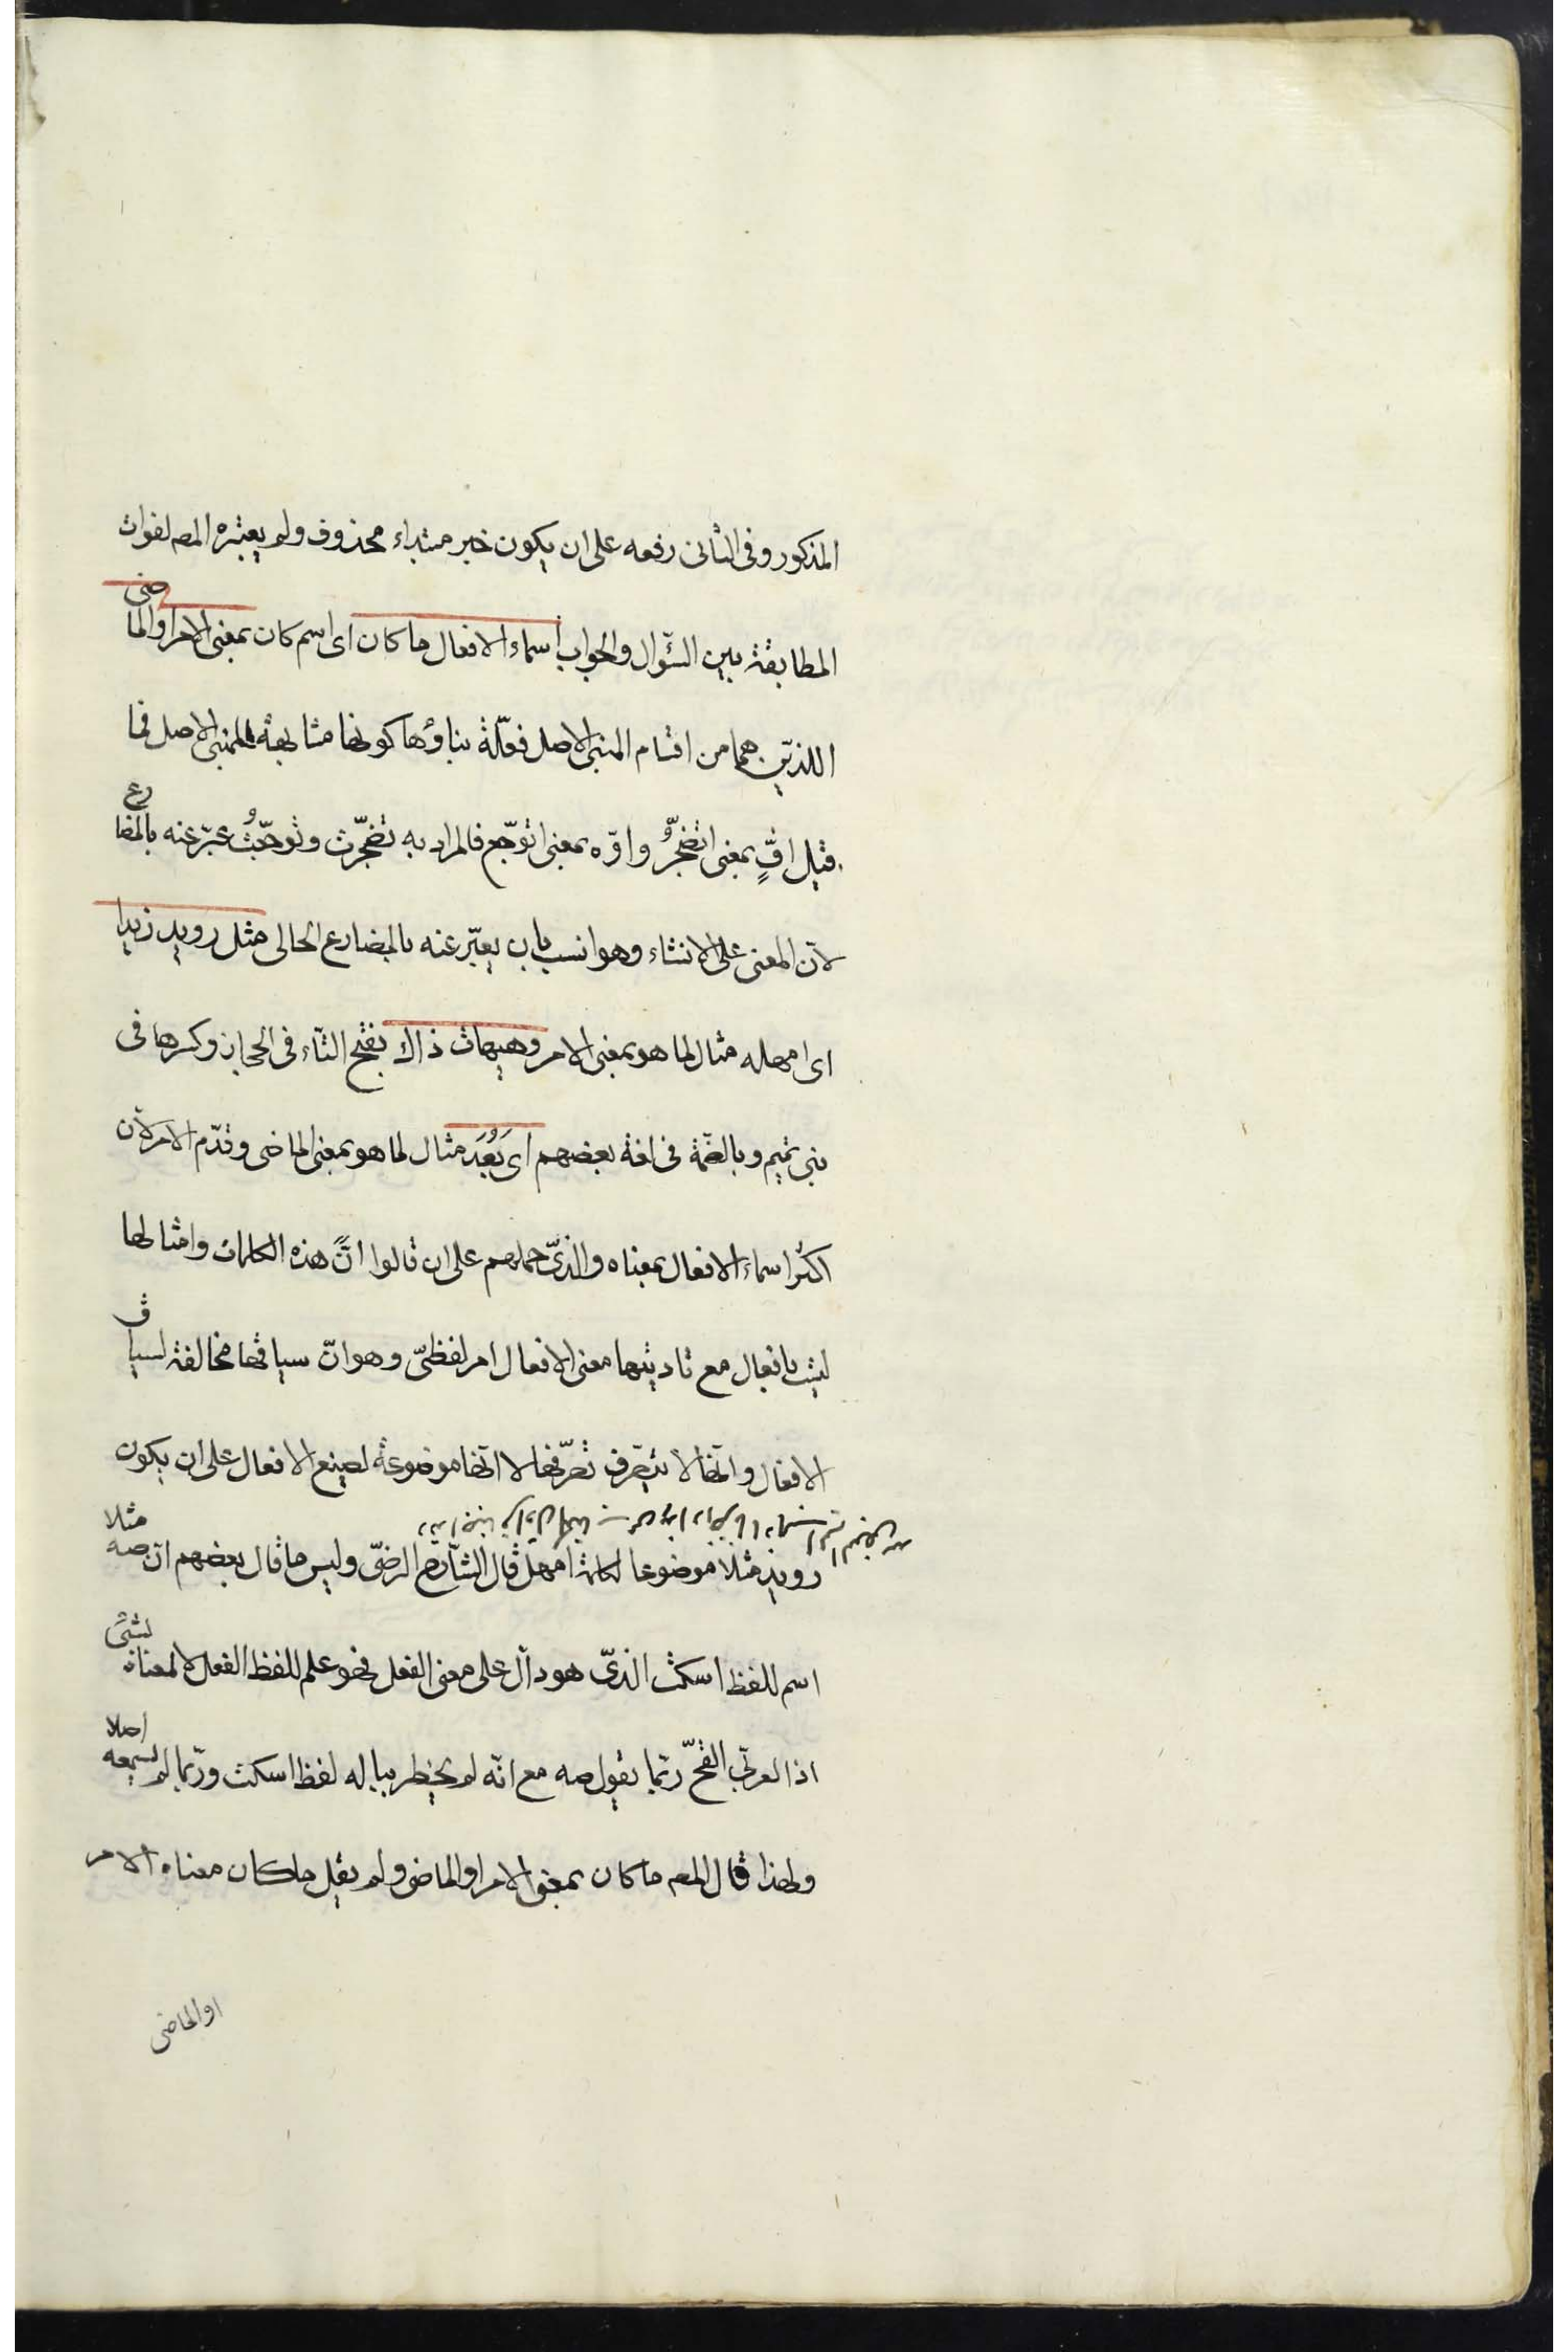 المذكور وفى الثانى رفعه على ان يكون خبر مبتداء محذوف ولم يعتبره المصـ لفوات
المطابقة بين السّؤال والجواب اسماء الافعال ما كان اى اسم كان بمعنى الامر او الماضى
اللذيّن هما من اقسام المبنى الاصل فعلّة بناؤها كونها مشابهة للمبنى الاصل فما
قيل افٍّ بمعنى اتضجّرُ واوّه بمعنى اتوجّع فالمراد به تضجّرت وتوجّعتُ عبّر عنه بالمضارع
لانّ المعنى على الانشاء وهو انسب بان يعبّر عنه بالمضارع الحالى مثل رويد زيدا
اى امهله مثال لما هو بمعنى الامر وهيهات ذاك بفتح التّاء فى الحجاز وكسرها فى
بنى تميم وبالضّمّة فى لغة بعضهم اى بَعُدَ مثال لما هو بمعنى الماضى وقدّم الامر لانّ
اكثر اسماء الافعال بمعناه والّذى حملهم على ان قالوا انّ هذه الكلمات وامثالها
ليست بافعال مع تاديتها معنى الافعال امر لفظىّ وهو انّ سياقها مخالفة لسياق
الافعال وانّها لا يتصرف تصرّفها لا انّها موضوعة لصيغ الافعال على ان يكون
رويد مثلا موضوعا لكلمة امهل قال الشّارح الرضىّ وليس ما قال بعضهم انّ صه مثلا
اسم للفظ اسكت الّذى هو دالّ على معنى الفعل فهو علم للفظ الفعل لا لمعناه لشئ
اذ العربىّ القحّ ربّما يقول صه مع انّه لم يخطر بباله لفظ اسكت وربّما لم يسمعه اصلا
ولهذا قال المصـ ما كان بمعنى الامر او الماضى ولم يقل ما كان معناه الامر
او الماضى